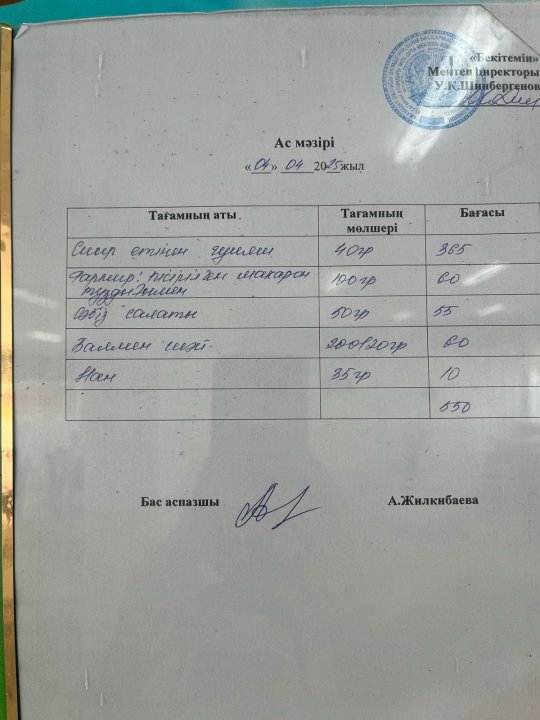 «Бекітемін»
Мектеп директоры
У.К.Шинбергенов
Ас мәзірі
«04» 04 2025жыл
Тағамның аты Тағамның мөлшері Бағасы
Сиыр етінен гуляш 40гр 365
Гарнир: Пісірілген макарон тұздығымен 100гр 60
Сәбіз салаты 50гр 55
шәй 200/20гр 60
Нан 35гр 10
550
Бас аспазшы А.Жилкибаева